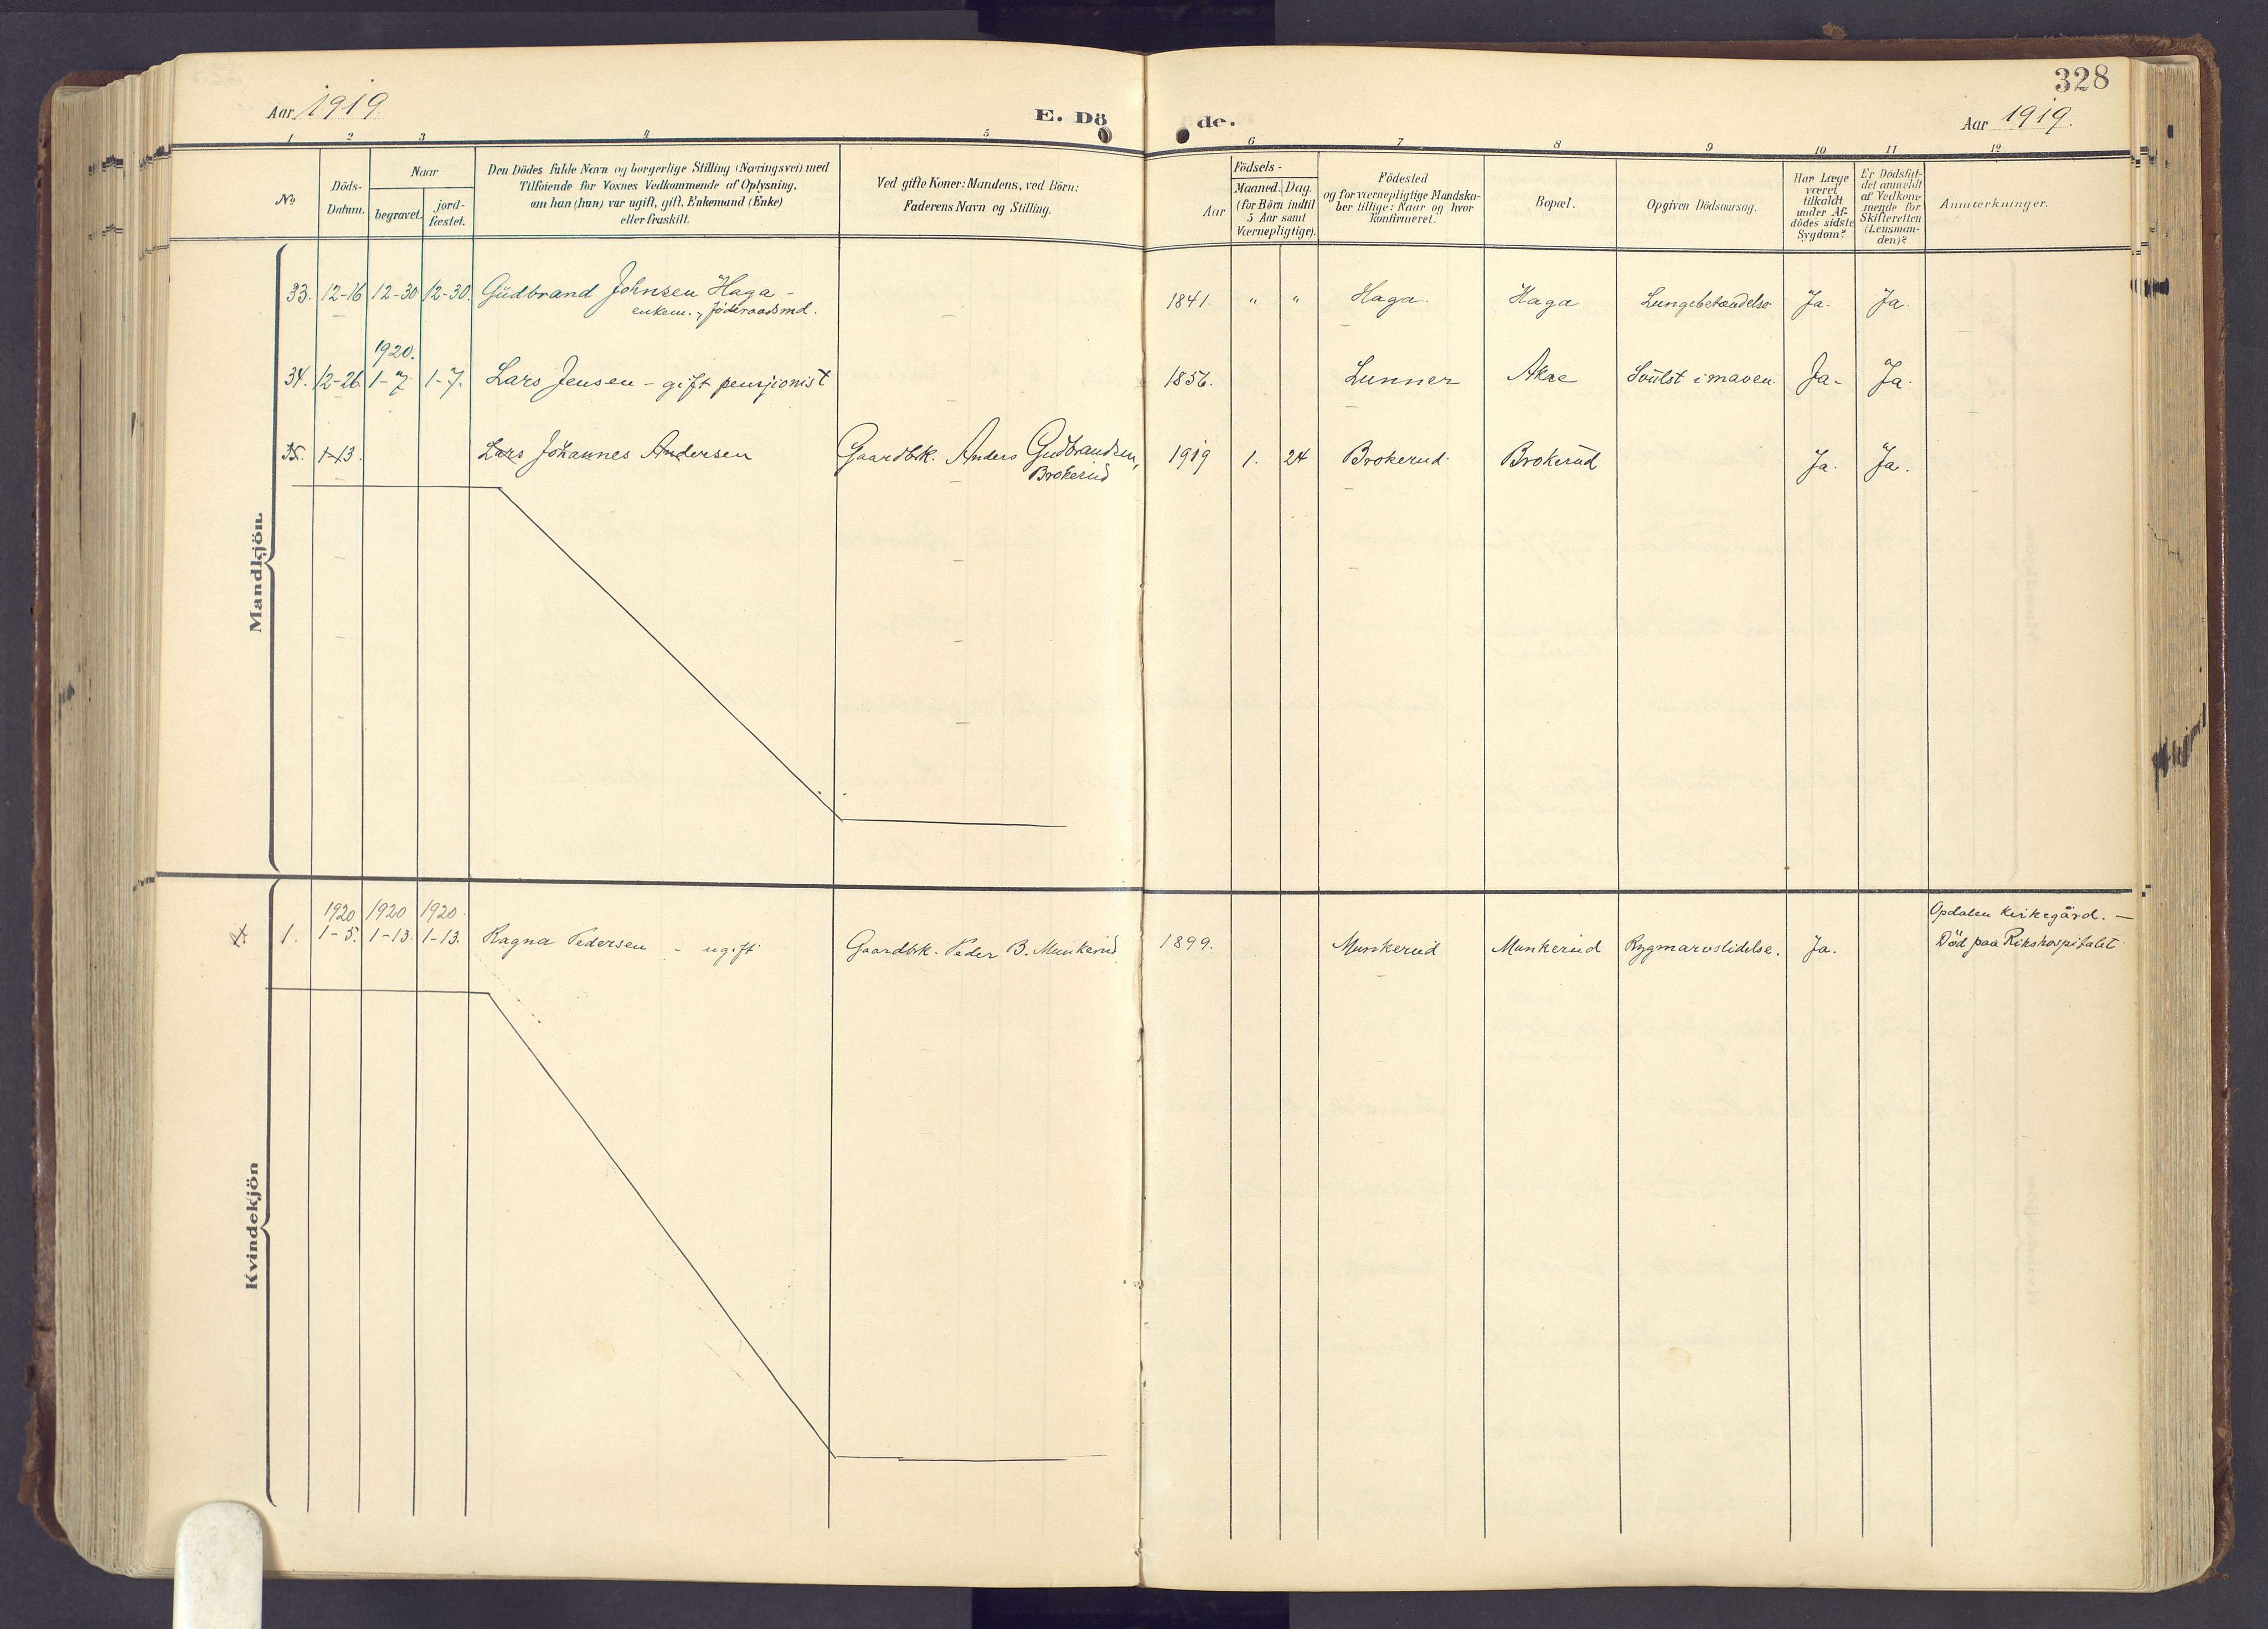 328
Aar 1919.
E. Dö de.
Aar 1919.
1 2 3 4 5 6 7 8 9 10 11 12
No
Döds-
Datum.
Naar
begravet.
jord-
fæstet.
Den Dödes fulde Navn og borgerlige Stilling (Næringsvei) med
Tilföiende for Voxnes Vedkommende af Oplysning,
om han (hun) var ugift, gift, Enkemand (Enke)
eller fraskilt.
Ved gifte Koner: Mandens, ved Börn:
Faderens Navn og Stilling.
Födsels-
Aar
Maaned. Dag.
(for Börn indtil
5 Aar samt
Værnepligtige).
Födested
og for værnepligtige Mandska-
ber tillige: Naar og hvor
konfirmeret.
Bopæl.
Opgiven Dödsaarsag.
Har Læge
været
tilkaldt
under Af-
dödes sidste
Sygdom?
Er Dödsfal-
det anmeldt
af Vedkom-
mende for
Skifteretten
(Lensman-
den)?
Anmærkninger.
Mandkjön.
33. 12-16 12-30 12-30. Gudbrand Johnsen Haga - 1841. " " Haga. Haga Lungebetændelse Ja. Ja.
enkem., föderaadsmd.
1920.
34. 12-26 1-7 1-7. Lars Jensen - gift pensjonist 1856. Lunner Akre Svulst i maven. Ja. Ja.
35. 1-13. Lars Johannes Andersen Gaardbk. Anders Gudbrandsen, 1919 1. 24 Brokerud. Brokerud Ja. Ja.
Brokerud
Kvindekjön
1920 1920 1920 Opdalen Kirkegård. —
1. 1-5. 1-13. 1-13. Ragna Pedersen - ugift Gaardbk. Peder B. Munkerud 1899. Munkerud Munkerud Rygmarvslidelse. Ja. Död paa Rikshospitalet